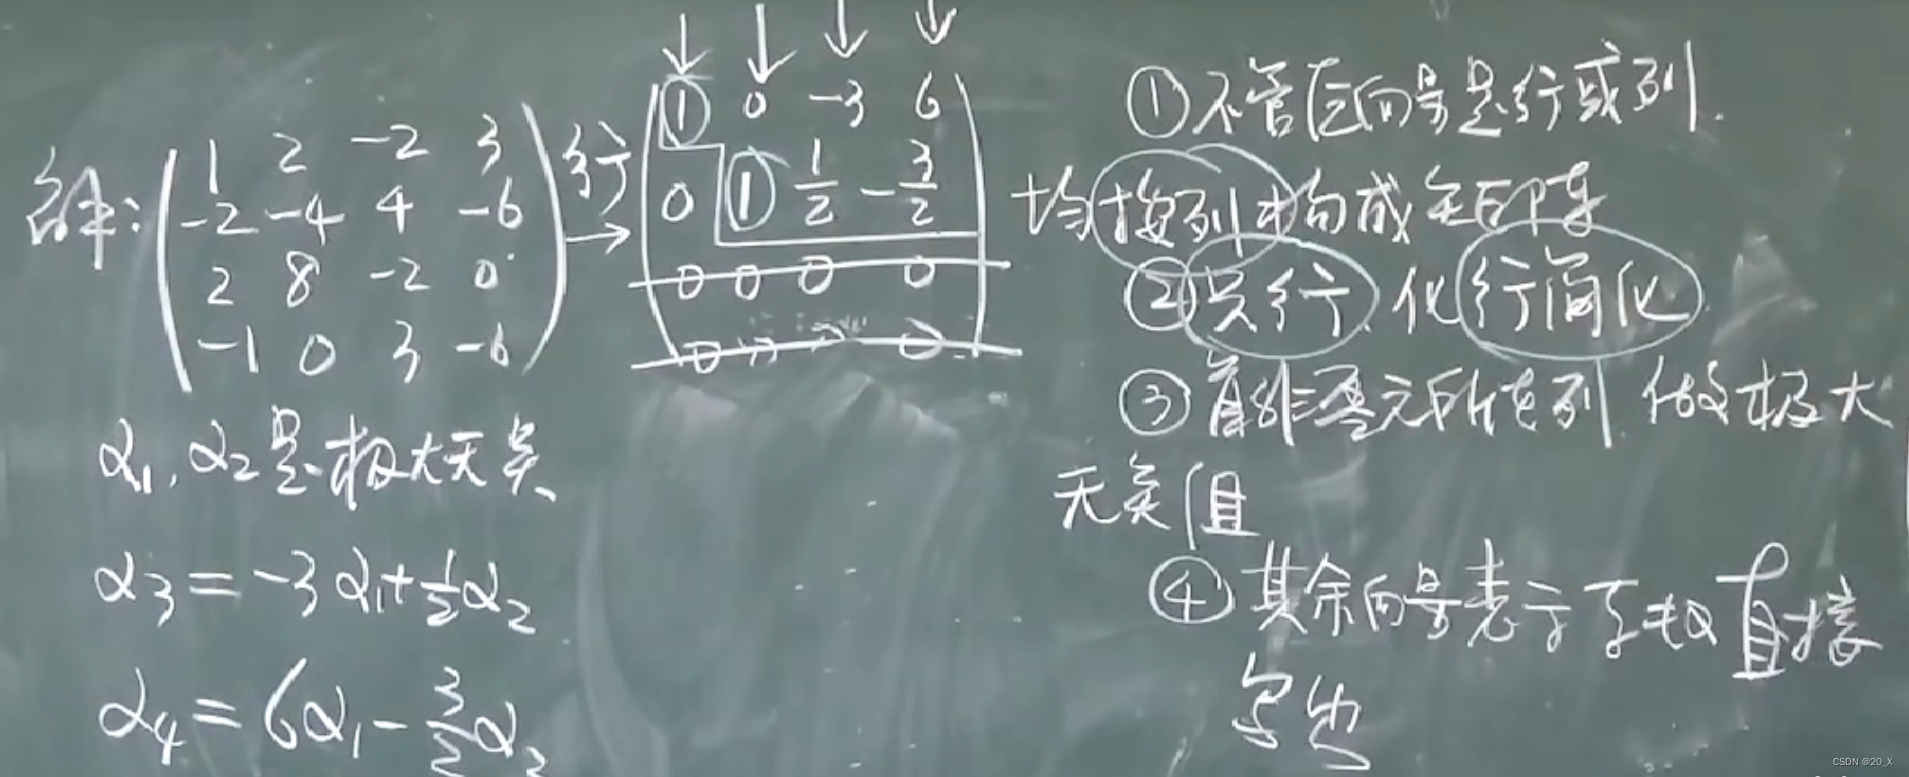 解:
1 2 -2 3
-2 -4 4 -6
2 8 -2 0
-1 0 3 -6
行
→
1 0 -3 6
0 1 1/2 -3/2
0 0 0 0
0 0 0 0
α1, α2是极大无关
α3 = -3α1 + 1/2 α2
α4 = 6α1 - 3/2 α2
①不管原向量是行或列.
均按列构成矩阵
②只行、化行简化
③首非零元所在列 做极大
无关组
④其余向量表示系数直接
写出
CSDN @20_X